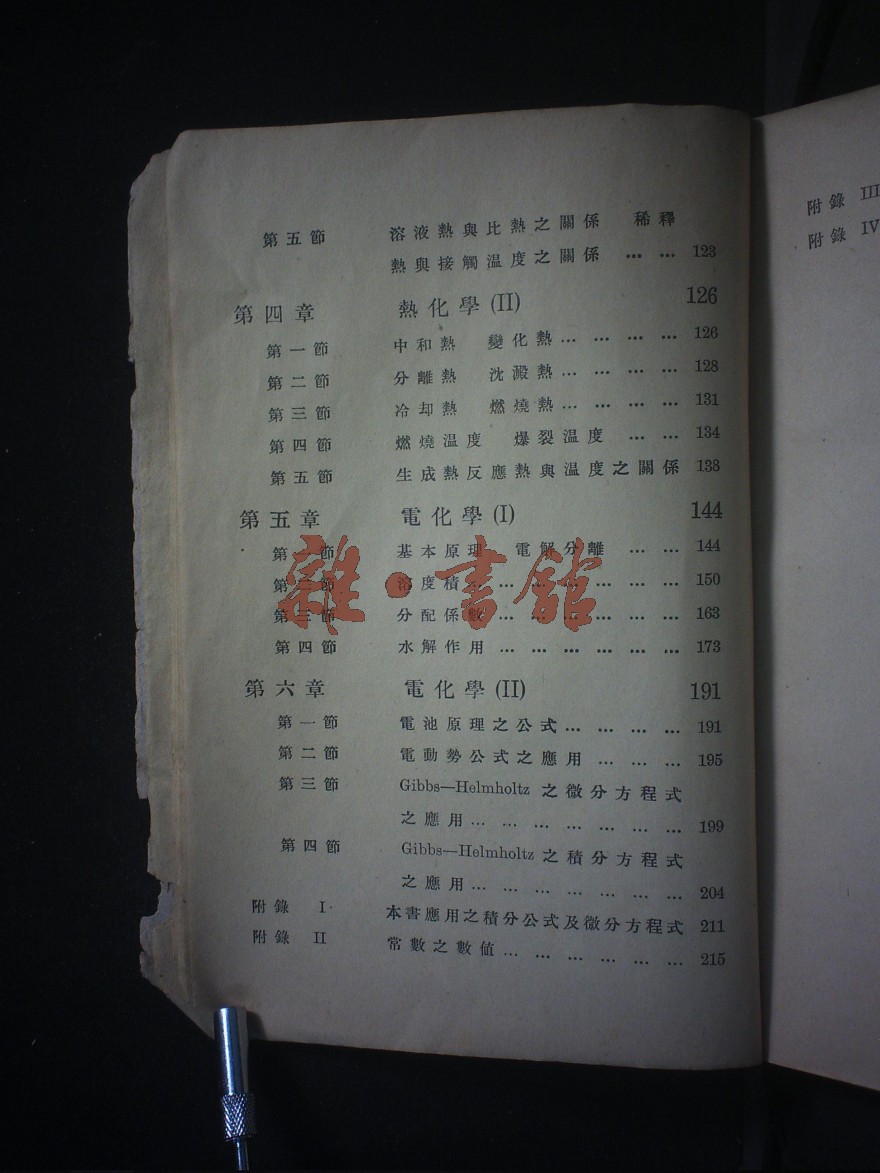 第五節 溶液熱與比熱之關係 稀釋
熱與接觸温度之關係 … … 123
第四章 熱化學(II) 126
第一節 中和熱 變化熱… … … … 126
第二節 分離熱 沈澱熱… … … … 128
第三節 冷却熱 燃燒熱… … … … 131
第四節 燃燒温度 爆裂温度 … … 134
第五節 生成熱反應熱與温度之關係 138
第五章 電化學(I) 144
第一節 基本原理 電解分離 … … 144
第二節 溶度積… … … … … … … 150
第三節 分配係數… … … … … … 163
第四節 水解作用… … … … … … 173
第六章 電化學(II) 191
第一節 電池原理之公式… … … … 191
第二節 電動勢公式之應用 … … … 195
第三節 Gibbs—Helmholtz 之微分方程式
之應用… … … … … … … 199
第四節 Gibbs—Helmholtz 之積分方程式
之應用… … … … … … … 204
附錄 I 本書應用之積分公式及微分方程式 211
附錄 II 常數之數值… … … … … … 215
附錄 III
附錄 IV
雜·書館